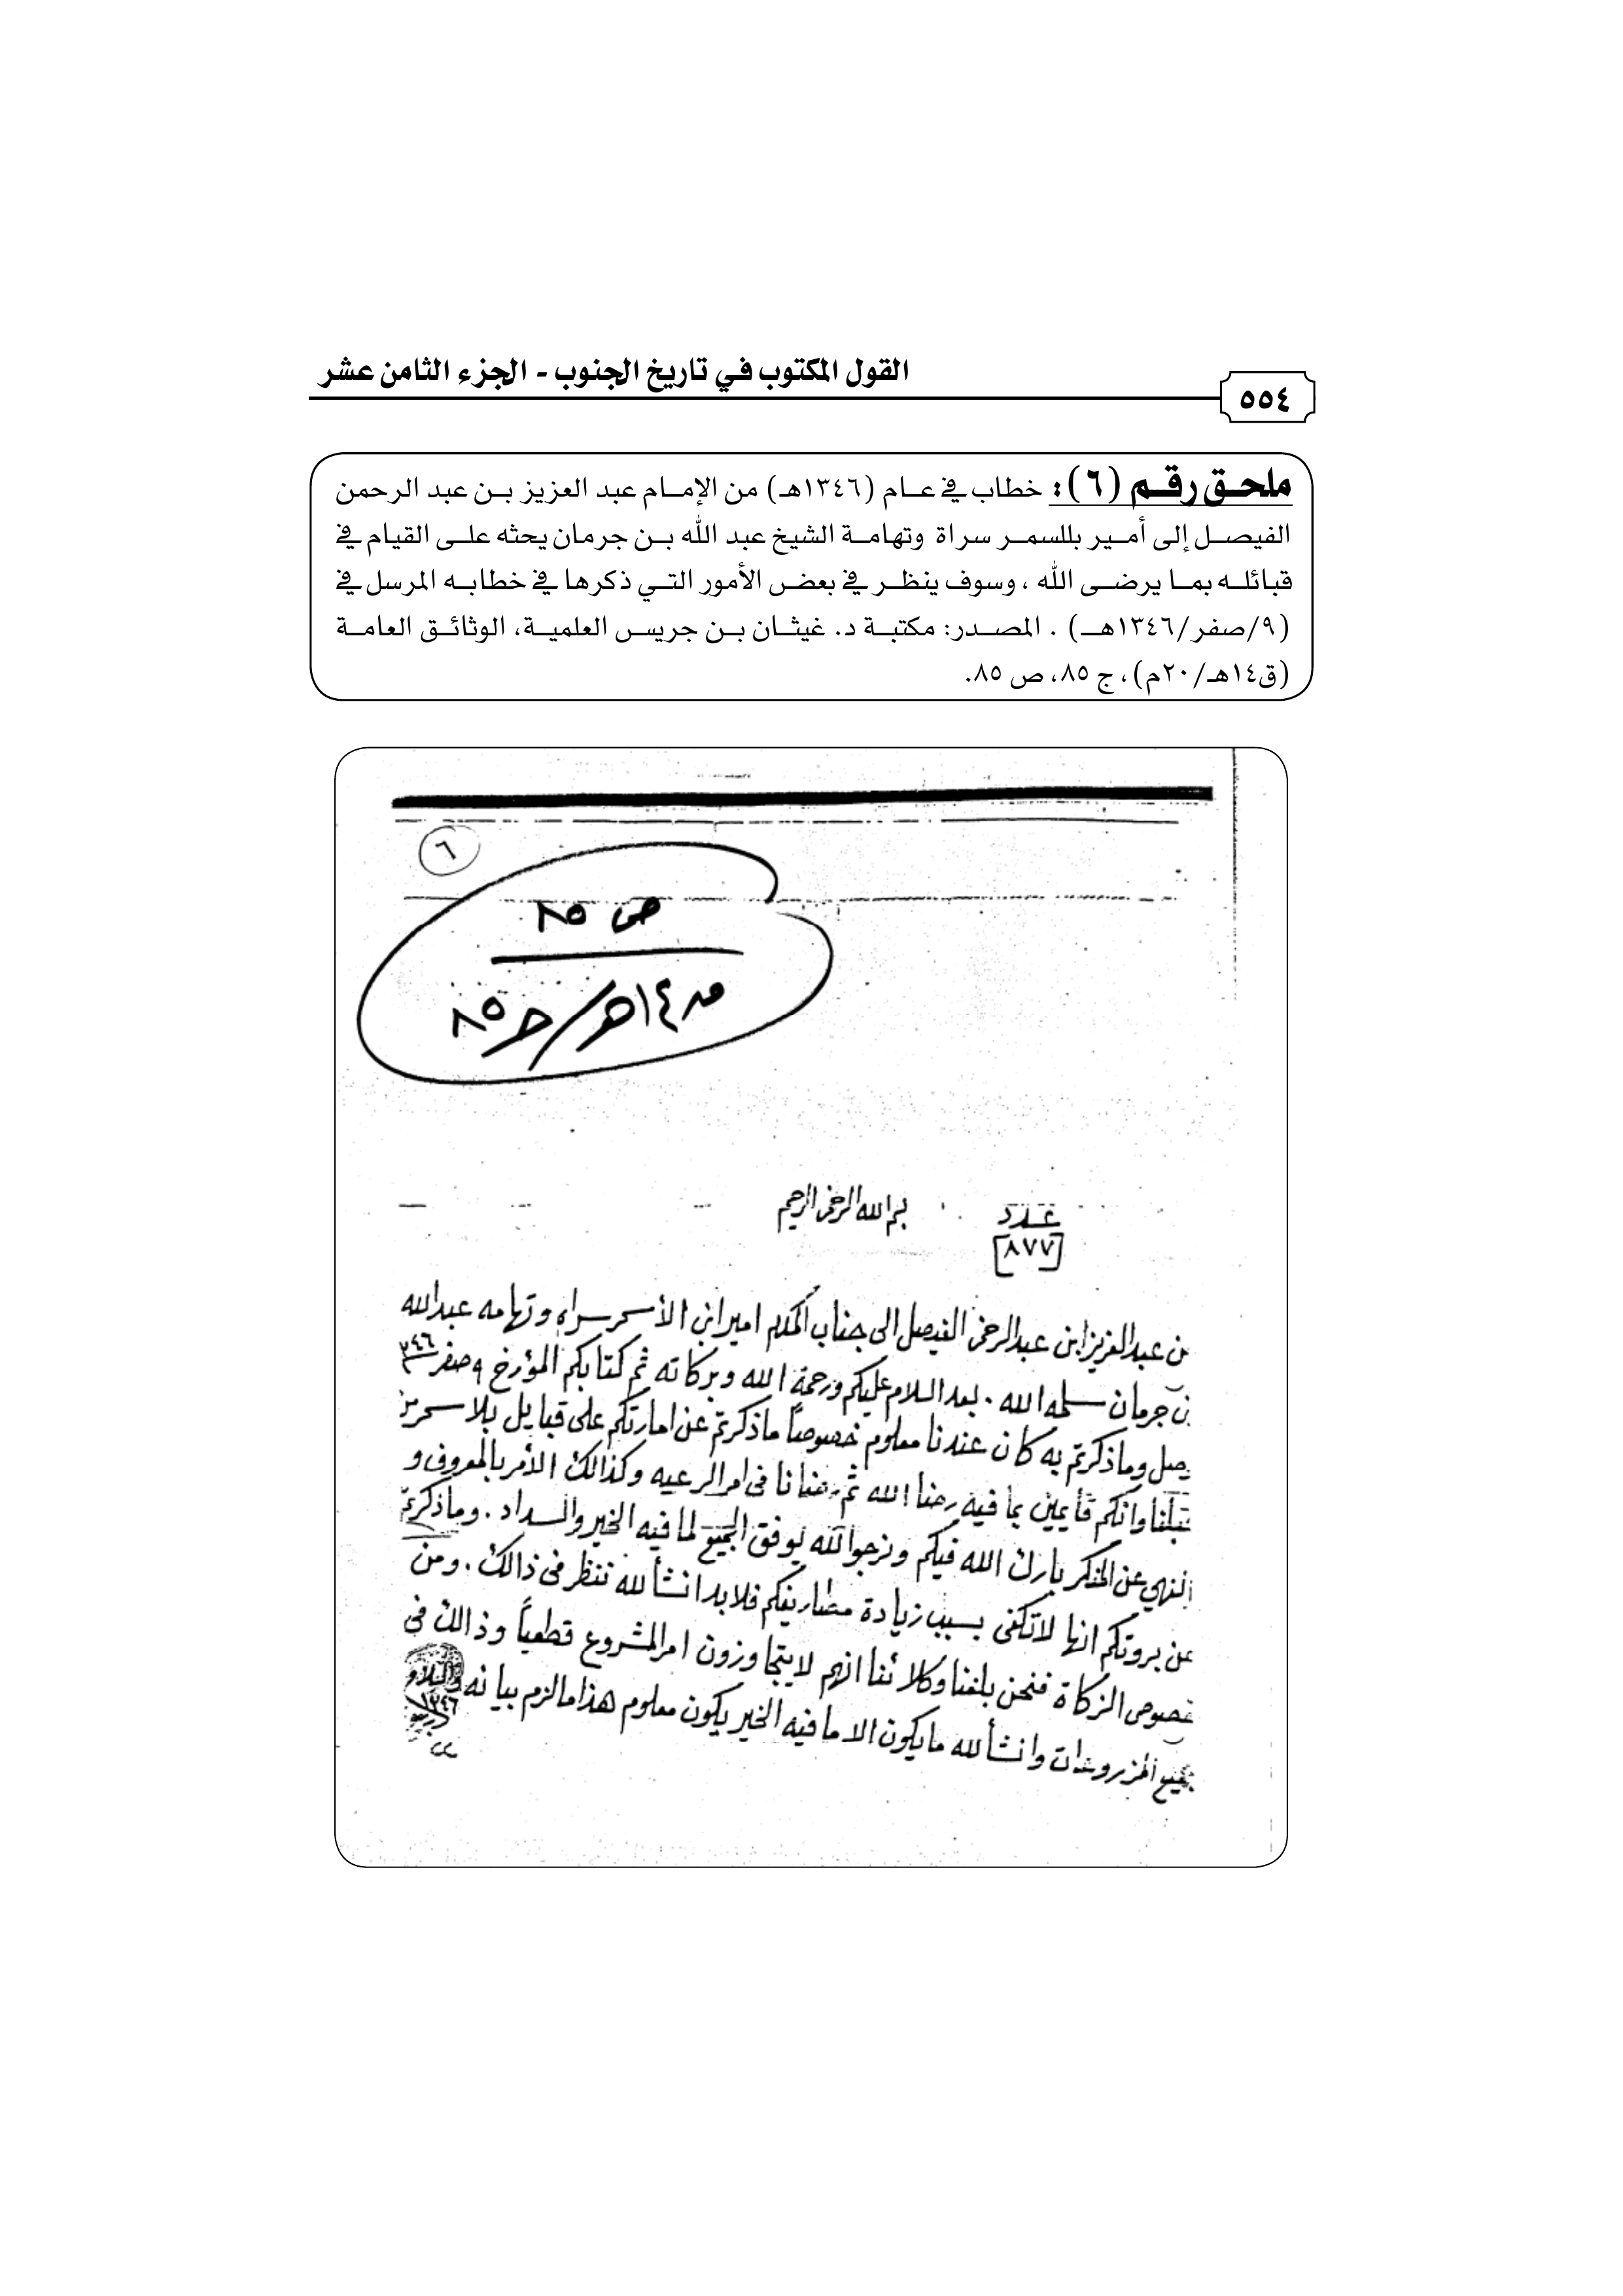 القول المكتوب في تاريخ الجنوب - الجزء الثامن عشر
٥٥٤
ملحق رقم (٦): خطاب في عام (١٣٤٦هـ) من الإمام عبد العزيز بن عبد الرحمن
الفيصل إلى أمير بللسمر سراة وتهامة الشيخ عبد الله بن جرمان يحثه على القيام في
قبائله بما يرضى الله ، وسوف ينظر في بعض الأمور التي ذكرها في خطابه المرسل في
(٩/صفر/١٣٤٦هـ) . المصدر: مكتبة د. غيثان بن جريس العلمية، الوثائق العامة
(ق١٤هـ/٢٠م)، ج ٨٥، ص ٨٥.
٦
ص ٨٥
ق ١٤هـ/ج ٨٥
بسم الله الرحمن الرحيم
عدد
[٨٧٧]
من عبدالعزيز ابن عبدالرحمن الفيصل الى جناب المكرم امير ابن الأسمر سراه وتهامه عبدالله
بن جرمان سلمه الله . بعد السلام عليكم ورحمة الله وبركاته ثم كتابكم المؤرخ ٩ صفر ٣٤٦
وصل وماذكرتم به كان عندنا معلوم خصوصاً ماذكرتم عن امارتكم على قبايل بلاسمر من
قبلنا وانكم قأيمين بما فيه رضا الله ثم رضانا في امر الرعيه وكذالك الأمر بالمعروف و
النهي عن المنكر بارك الله فيكم ونرجوا لله يوفق الجميع لما فيه الخير والسداد . وماذكرتم
عن بروتكم انها لاتكفي بسبب زيادة مصاريفكم فلابد انشأ لله ننظر في ذالك . ومن
خصوص الزكاة فنحن بلغنا وكلائنا انهم لايتجاوزون امر المشروع قطعياً وذالك في
جميع المزروعات وانشأ لله مايكون الا مافيه الخير يكون معلوم هذا مالزم بيانه والسلام
١٣٤٦